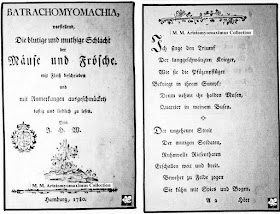 BATRACHOMYOMACHIA,
vorstellend,
Die blutige und muthige Schlacht
der
Mäuse und Frösche.
mit Fleiß beschrieben
und
mit Anmerkungen ausgeschmücket,
lustig und lieblich zu lesen.
Von
J. H. W.
M. M. Aristomyomaximus Collection
Hamburg, 1780.
M. M. Aristomyomaximus Collection
Ich singe den Triumf
Der langgeschwänzten Krieger,
Wie sie die Pfützenpfläger
Bekriegt in ihrem Sumpfe:
Drum nehmt ihr holden Musen,
Quartier in meinem Busen.
Der ungeheure Streit
Der mutigen Soldaten,
Ruhmvolle Riesenthaten
Erschallen weit und breit.
Bewehrt zu Felde zogen
Sie kühn mit Spies und Bogen.
A 2
Hört